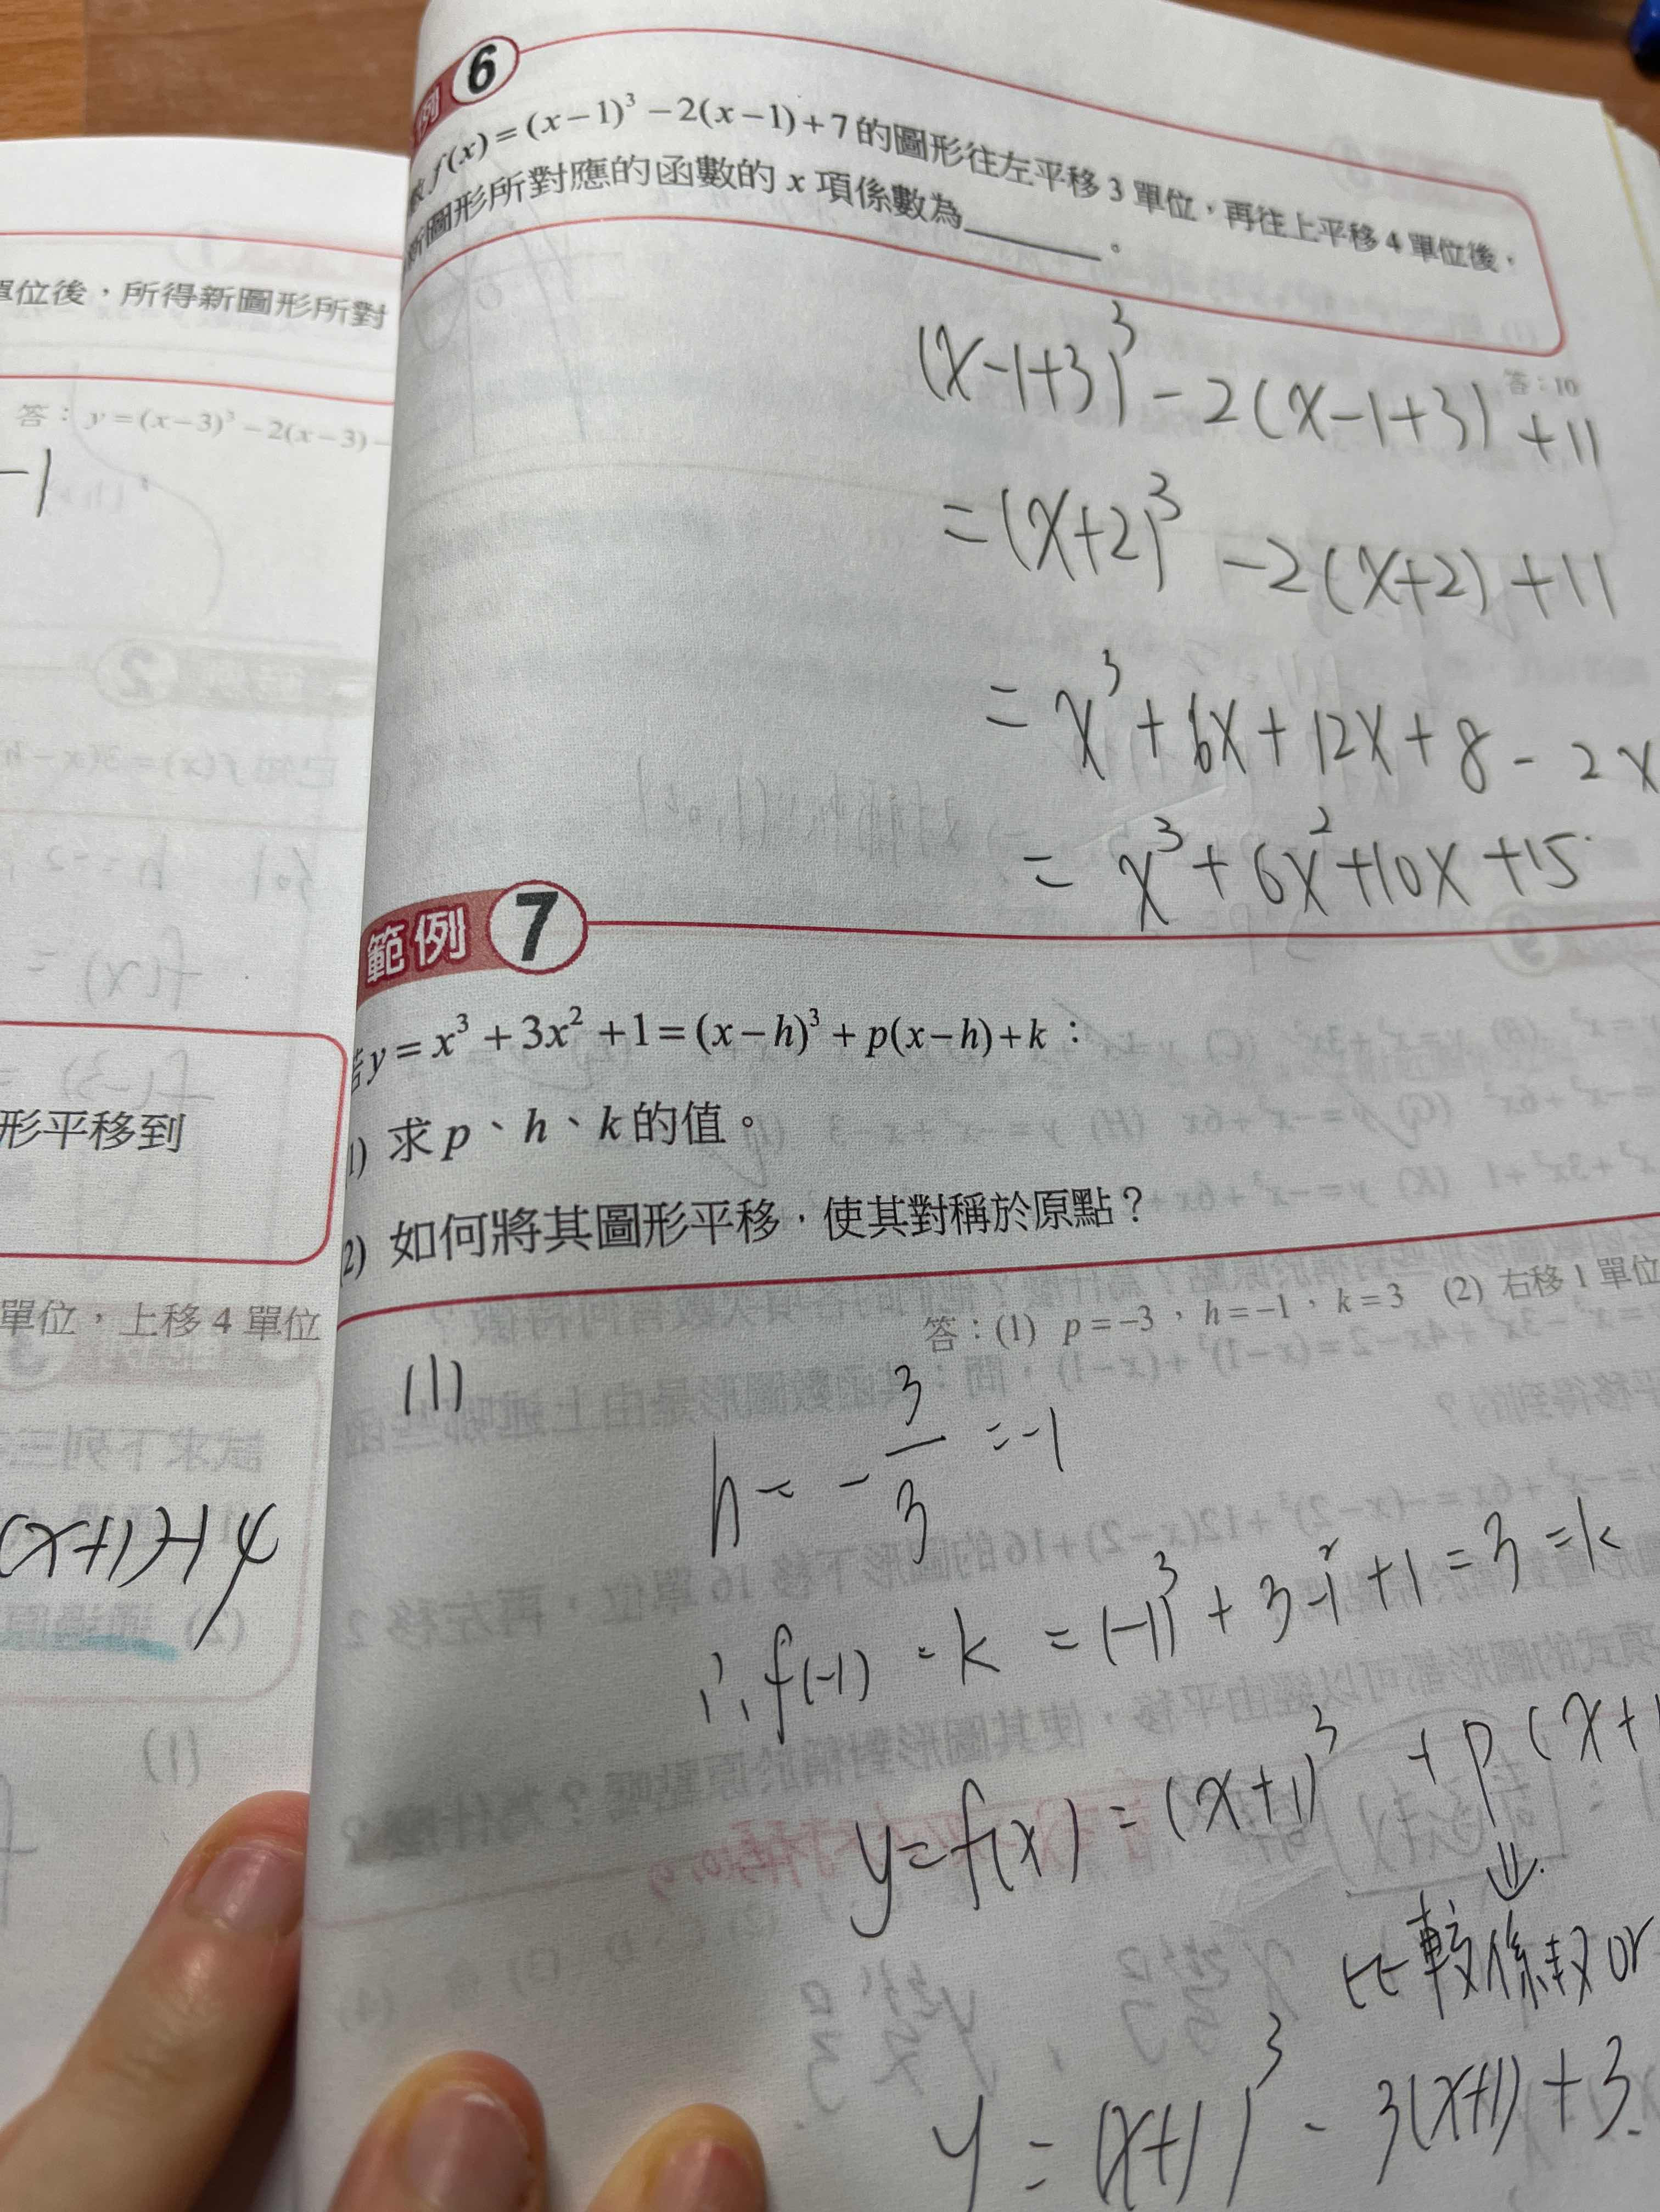 單位後，所得新圖形所對
答：y=(x−3)³−2(x−3)−
−1
形平移到
單位，上移 4 單位
(x+1)+4
例 6
f(x)=(x−1)³−2(x−1)+7 的圖形往左平移 3 單位，再往上平移 4 單位後，
新圖形所對應的函數的 x 項係數為________。
答：10
(x−1+3)³−2(x−1+3)+11
=(x+2)³−2(x+2)+11
=x³+6x+12x+8−2x
=x³+6x²+10x+15
範例 7
若 y=x³+3x²+1=(x−h)³+p(x−h)+k：
1) 求 p、h、k 的值。
2) 如何將其圖形平移，使其對稱於原點？
答：(1) p=−3，h=−1，k=3 (2) 右移 1 單位
(1)
h=−3/3=−1
∴f(−1)=k=(−1)³+3·−1²+1=3=k
y=f(x)=(x+1)³+p(x+1
⇓
比較係數or
y=(x+1)³−3(x+1)+3.